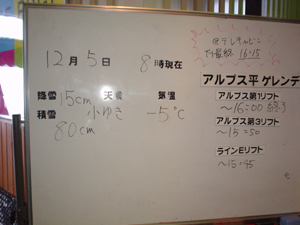 12月5日 8時現在
降雪 15cm 天候 小ゆき 気温 -5℃
積雪 80cm
テレキャビン
下り最終 16:15
アルプス平 ゲレンデ
アルプス第1リフト
～16:00
アルプス第3リフト
～15:50
ラインEリフト
～15:45